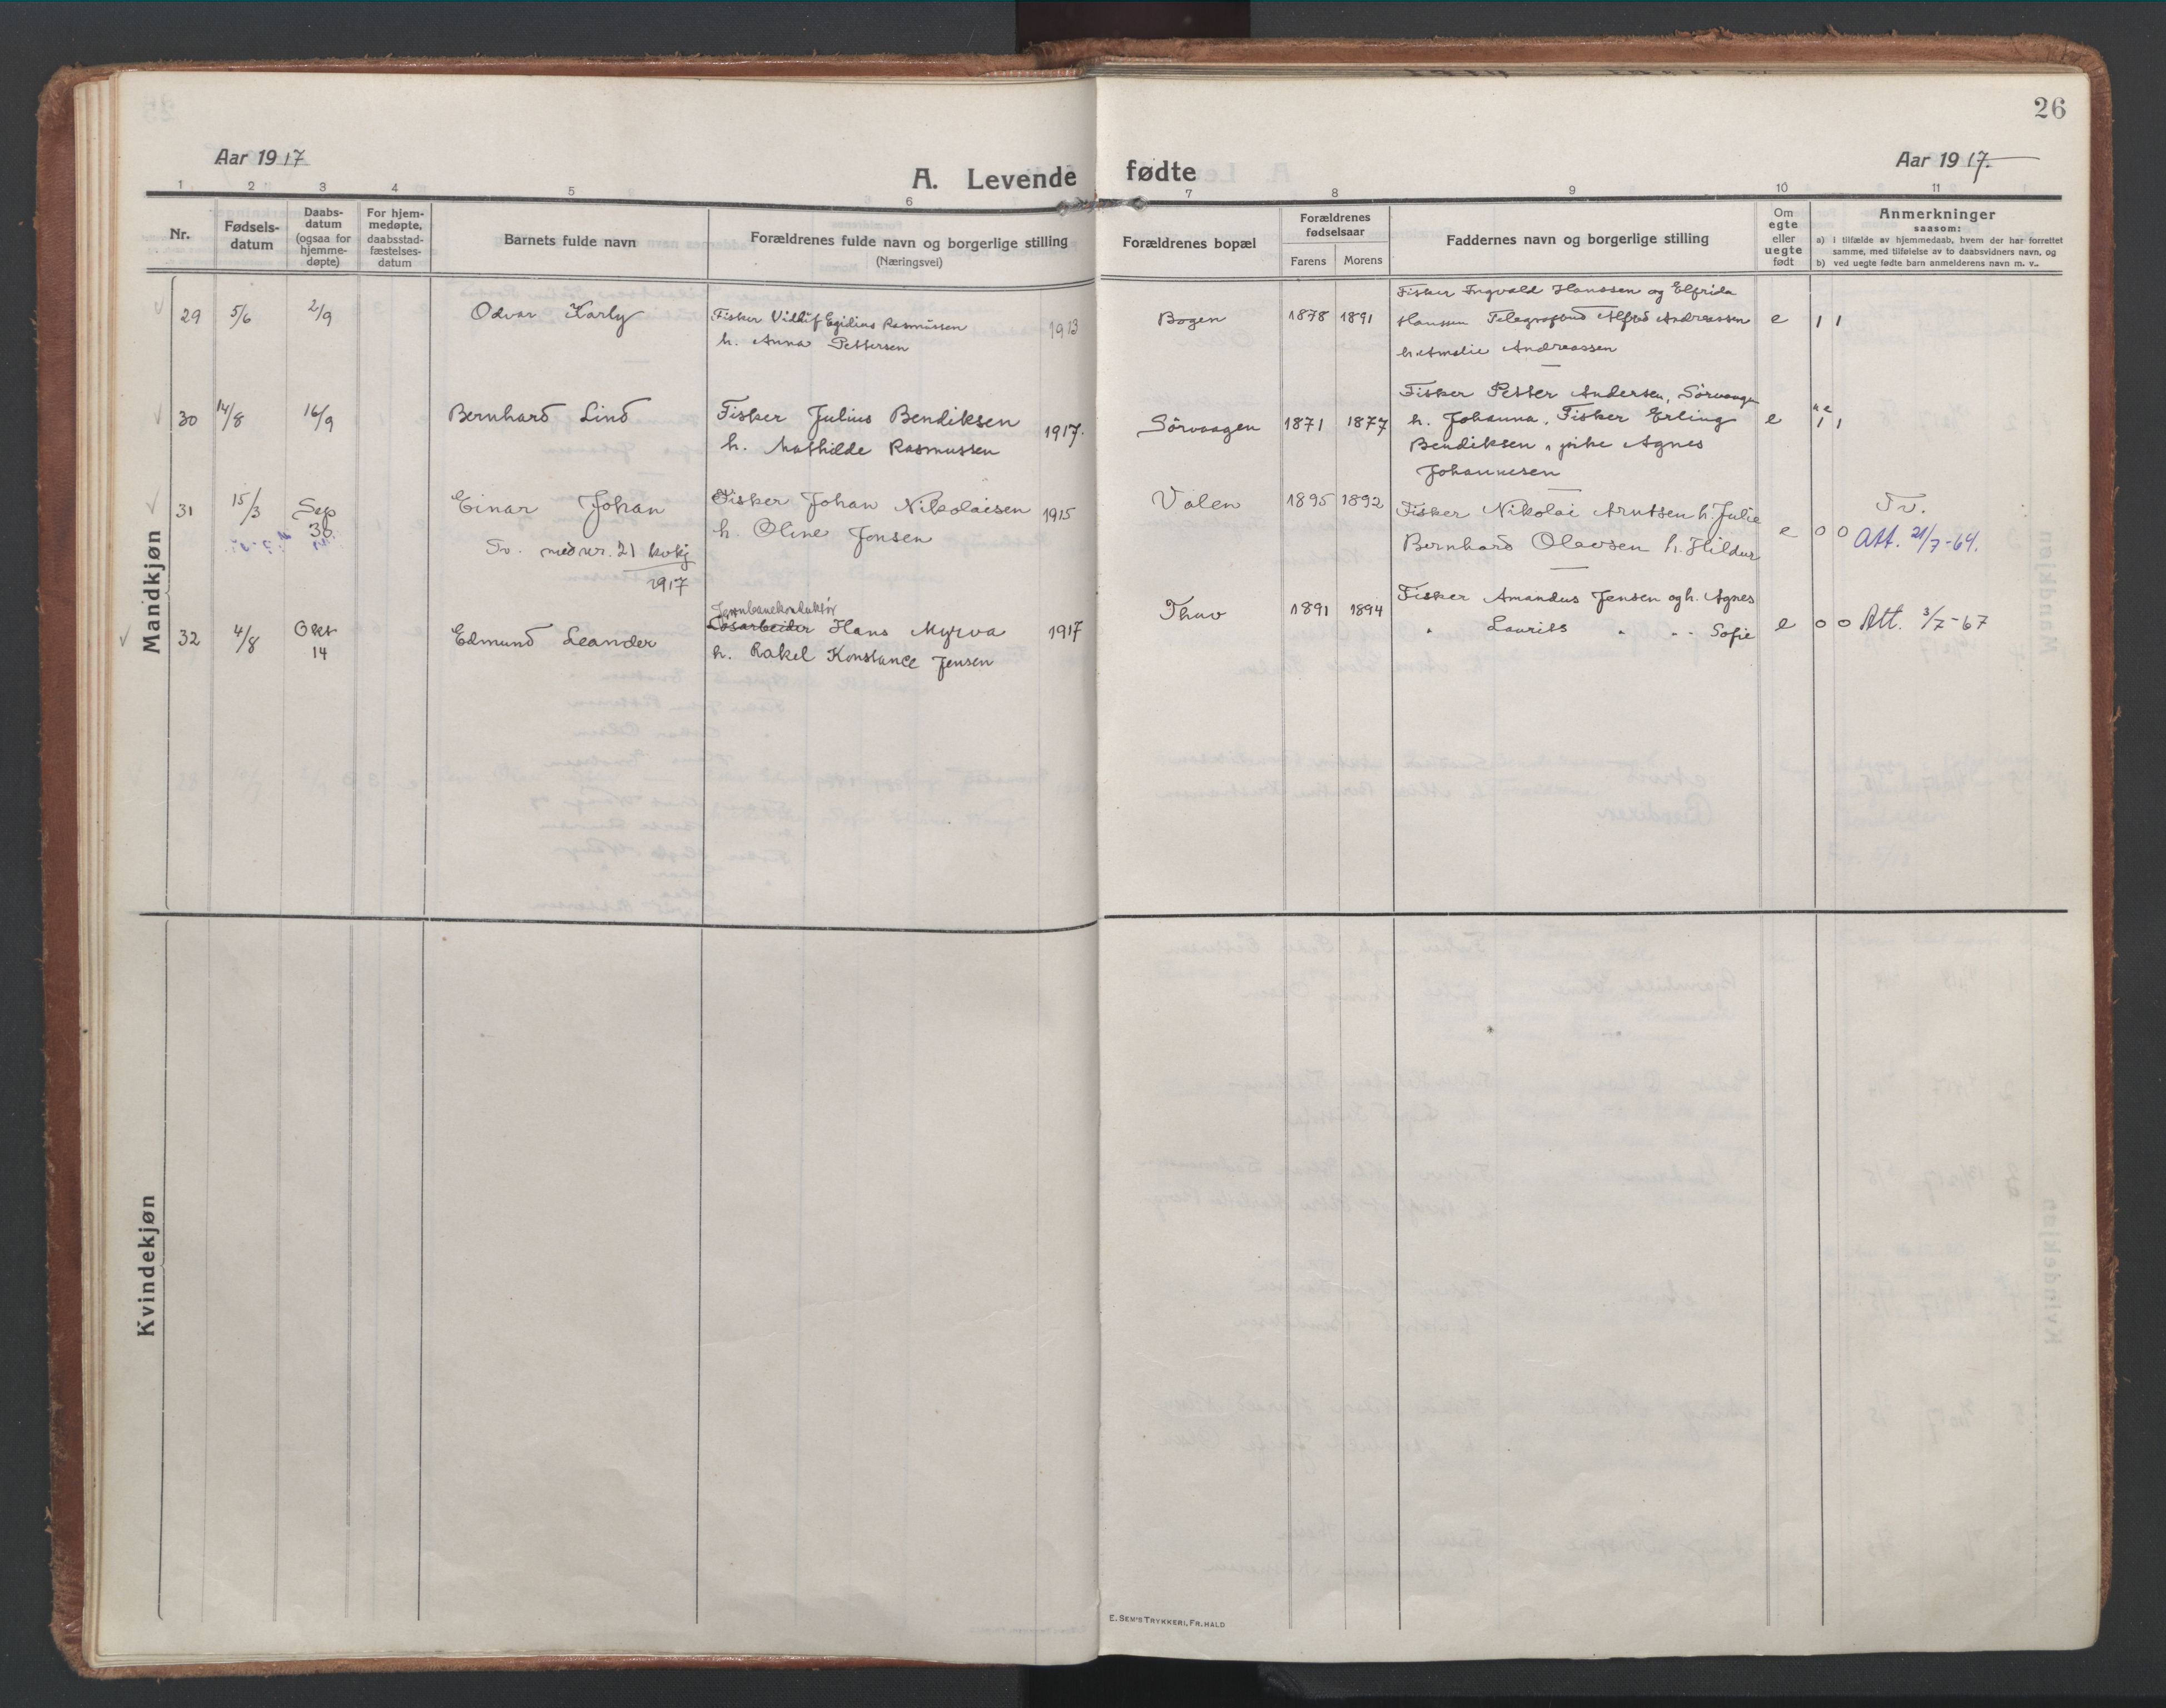 26
Aar 1917
A. Levende fødte
Aar 1917.
1 2 3 4 5 6 7 8 9 10 11
Nr.
Fødsels-
datum
Daabs-
datum
(ogsaa for
hjemme-
døpte)
For hjem-
medøpte,
daabsstad-
fæstelses-
datum
Barnets fulde navn
Forældrenes fulde navn og borgerlige stilling
(Næringsvei)
Forældrenes bopæl
Forældrenes
fødselsaar
Farens Morens
Faddernes navn og borgerlige stilling
Om
egte
eller
uegte
født
Anmerkninger
saasom:
a) i tilfælde av hjemmedaab, hvem der har forrettet
samme, med tilføielse av to daabsvidners navn, og
b) ved uegte fødte barn anmelderens navn m. v..
Mandkjøn
29 5/6 2/9 Odvar Karly
Fisker Vidlif Egidius Rasmussen
h. Anna Pettersen
1913
Bogen 1878 1891
Fisker Ingvald Hanssen og Elfrida
Hanssen Telegrafbud Alfred Andreassen
h. Amalie Andreassen
e 1 1
30 14/8 16/9 Bernhard Lind
Fisker Julius Bendiksen
h. Mathilde Rasmussen
1917.
Sørvaagen 1871 1877
Fisker Petter Andersen, Sørvaagen
h. Johanna, Fisker Erling
Bendiksen, pike Agnes
Johannesen
e 1 1
31 15/3 Sep
30
Einar Johan
Tv. med nr. 21 kvkj
1917
Fisker Johan Nikolaisen
h. Oline Jensen
1915
Valen 1895 1892
Fisker Nikolai Arntsen h. Julie
Bernhard Olavsen h. Hildur
e 0 0
Tv.
Att. 21/7-64.
32 4/8 Okt
14
Edmund Leander
Jernbanekonduktør
Løsarbeider Hans Myrva
h. Rakel Konstance Jensen
1917
Thuv 1891 1894
Fisker Amandus Jensen og h. Agnes
" Laurits " " - Sofie
e 0 0 Att. 3/7-67
Kvindekjøn
E. SEM'S TRYKKERI, FR.HALD